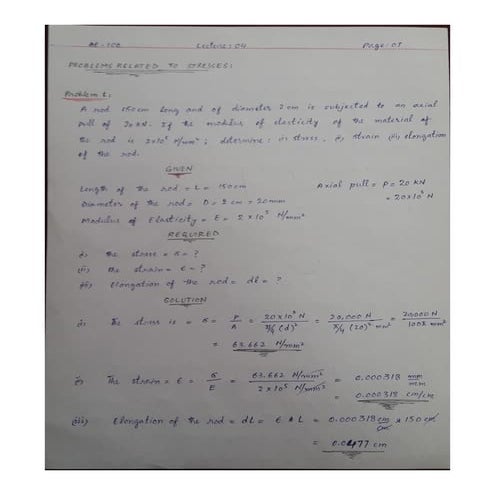 Lecture: 04 Page: 01
PROBLEMS RELATED TO STRESSES:
Problem 1:
A rod 150cm long and of diameter 2cm is subjected to an axial
pull of 20kN. If the modulus of elasticity of the material of
the rod is 2x10⁵ N/mm²; determine: i) stress. ii) strain iii) elongation
of the rod.
GIVEN
Length of the rod = L = 150cm Axial pull = P = 20 KN
= 20x10³ N
Diameter of the rod = D = 2 cm = 20mm
Modulus of Elasticity = E = 2 x 10⁵ N/mm²
REQUIRED
i) the stress = σ = ?
(ii) the strain = ε = ?
iii) Elongation of the rod = dL = ?
SOLUTION
i) The stress is = σ = P/A = 20x10³ N / π/4 (d)² = 20,000 N / π/4 (20)² mm² = 20000 N
= 63.662 N/mm²
The strain = ε = σ/E = 63.662 N/mm² / 2x10⁵ N/mm² = 0.000318 mm/mm
= 0.000318 cm/cm
(iii) Elongation of the rod = dL = ε x L = 0.000318 cm/cm x 150 cm
= 0.0477 cm